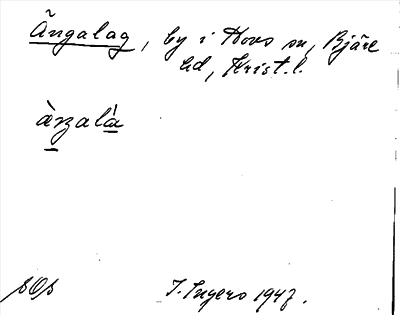 Ängalag, by i Hovs sn, Bjäre
hd, Krist. l.
àŋalá
I. Ingers 1947.